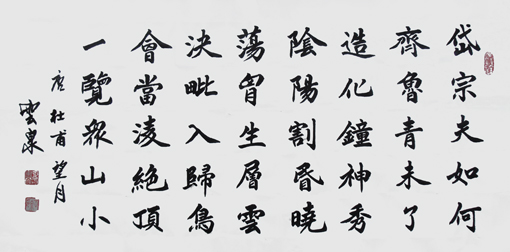 岱宗夫如何
齊魯青未了
造化鐘神秀
陰陽割昏曉
蕩胷生層雲
決毗入歸鳥
會當淩絕頂
一覽衆山小
唐杜甫望月
雲泉